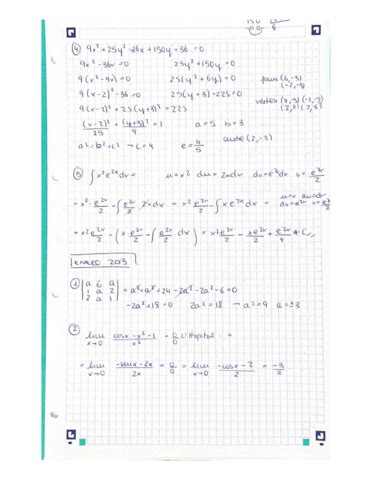 ④ 9x² + 25y² - 36x + 150y + 36 = 0
9x² - 36x = 0    25y² + 150y = 0
9(x² - 4x) = 0    25(y² + 6y) = 0    focus (6,-3) (-2,-3)
9(x-2)² - 36 = 0    25(y+3) - 225 = 0
9(x-2)² + 25(y+3)² = 225
(x-2)²/25 + (y+3)²/9 = 1    a = 5  b = 3
a² = b² + c² → c = 4    e = 4/5    centre (2,-3)
⑤ ∫x²e²ˣdx =    u = x²  du = 2xdx  dv = e²ˣdx  v = e²ˣ/2
= x²·e²ˣ/2 - ∫e²ˣ/2 2xdx = x²e²ˣ/2 - ∫xe²ˣdx =    u=x  du=dx  dv=e²ˣ  v=e²ˣ/2
= x²e²ˣ/2 - (x·e²ˣ/2 - ∫e²ˣ/2 dx) = x²e²ˣ/2 - xe²ˣ/2 + e²ˣ/4 + C
ENERO 2013
① |a 6 a; 1 a 2; 2 a 1| = a² + a² + 24 - 2a² - 2a² - 6 = 0
-2a² + 18 = 0    2a² = 18 → a² = 9  a = ±3
② lim x→0 cosx - x² - 1 / x² = 0/0 L'Hopital =
= lim x→0 -senx - 2x / 2x = 0/0 = lim x→0 -cosx - 2 / 2 = -3/2